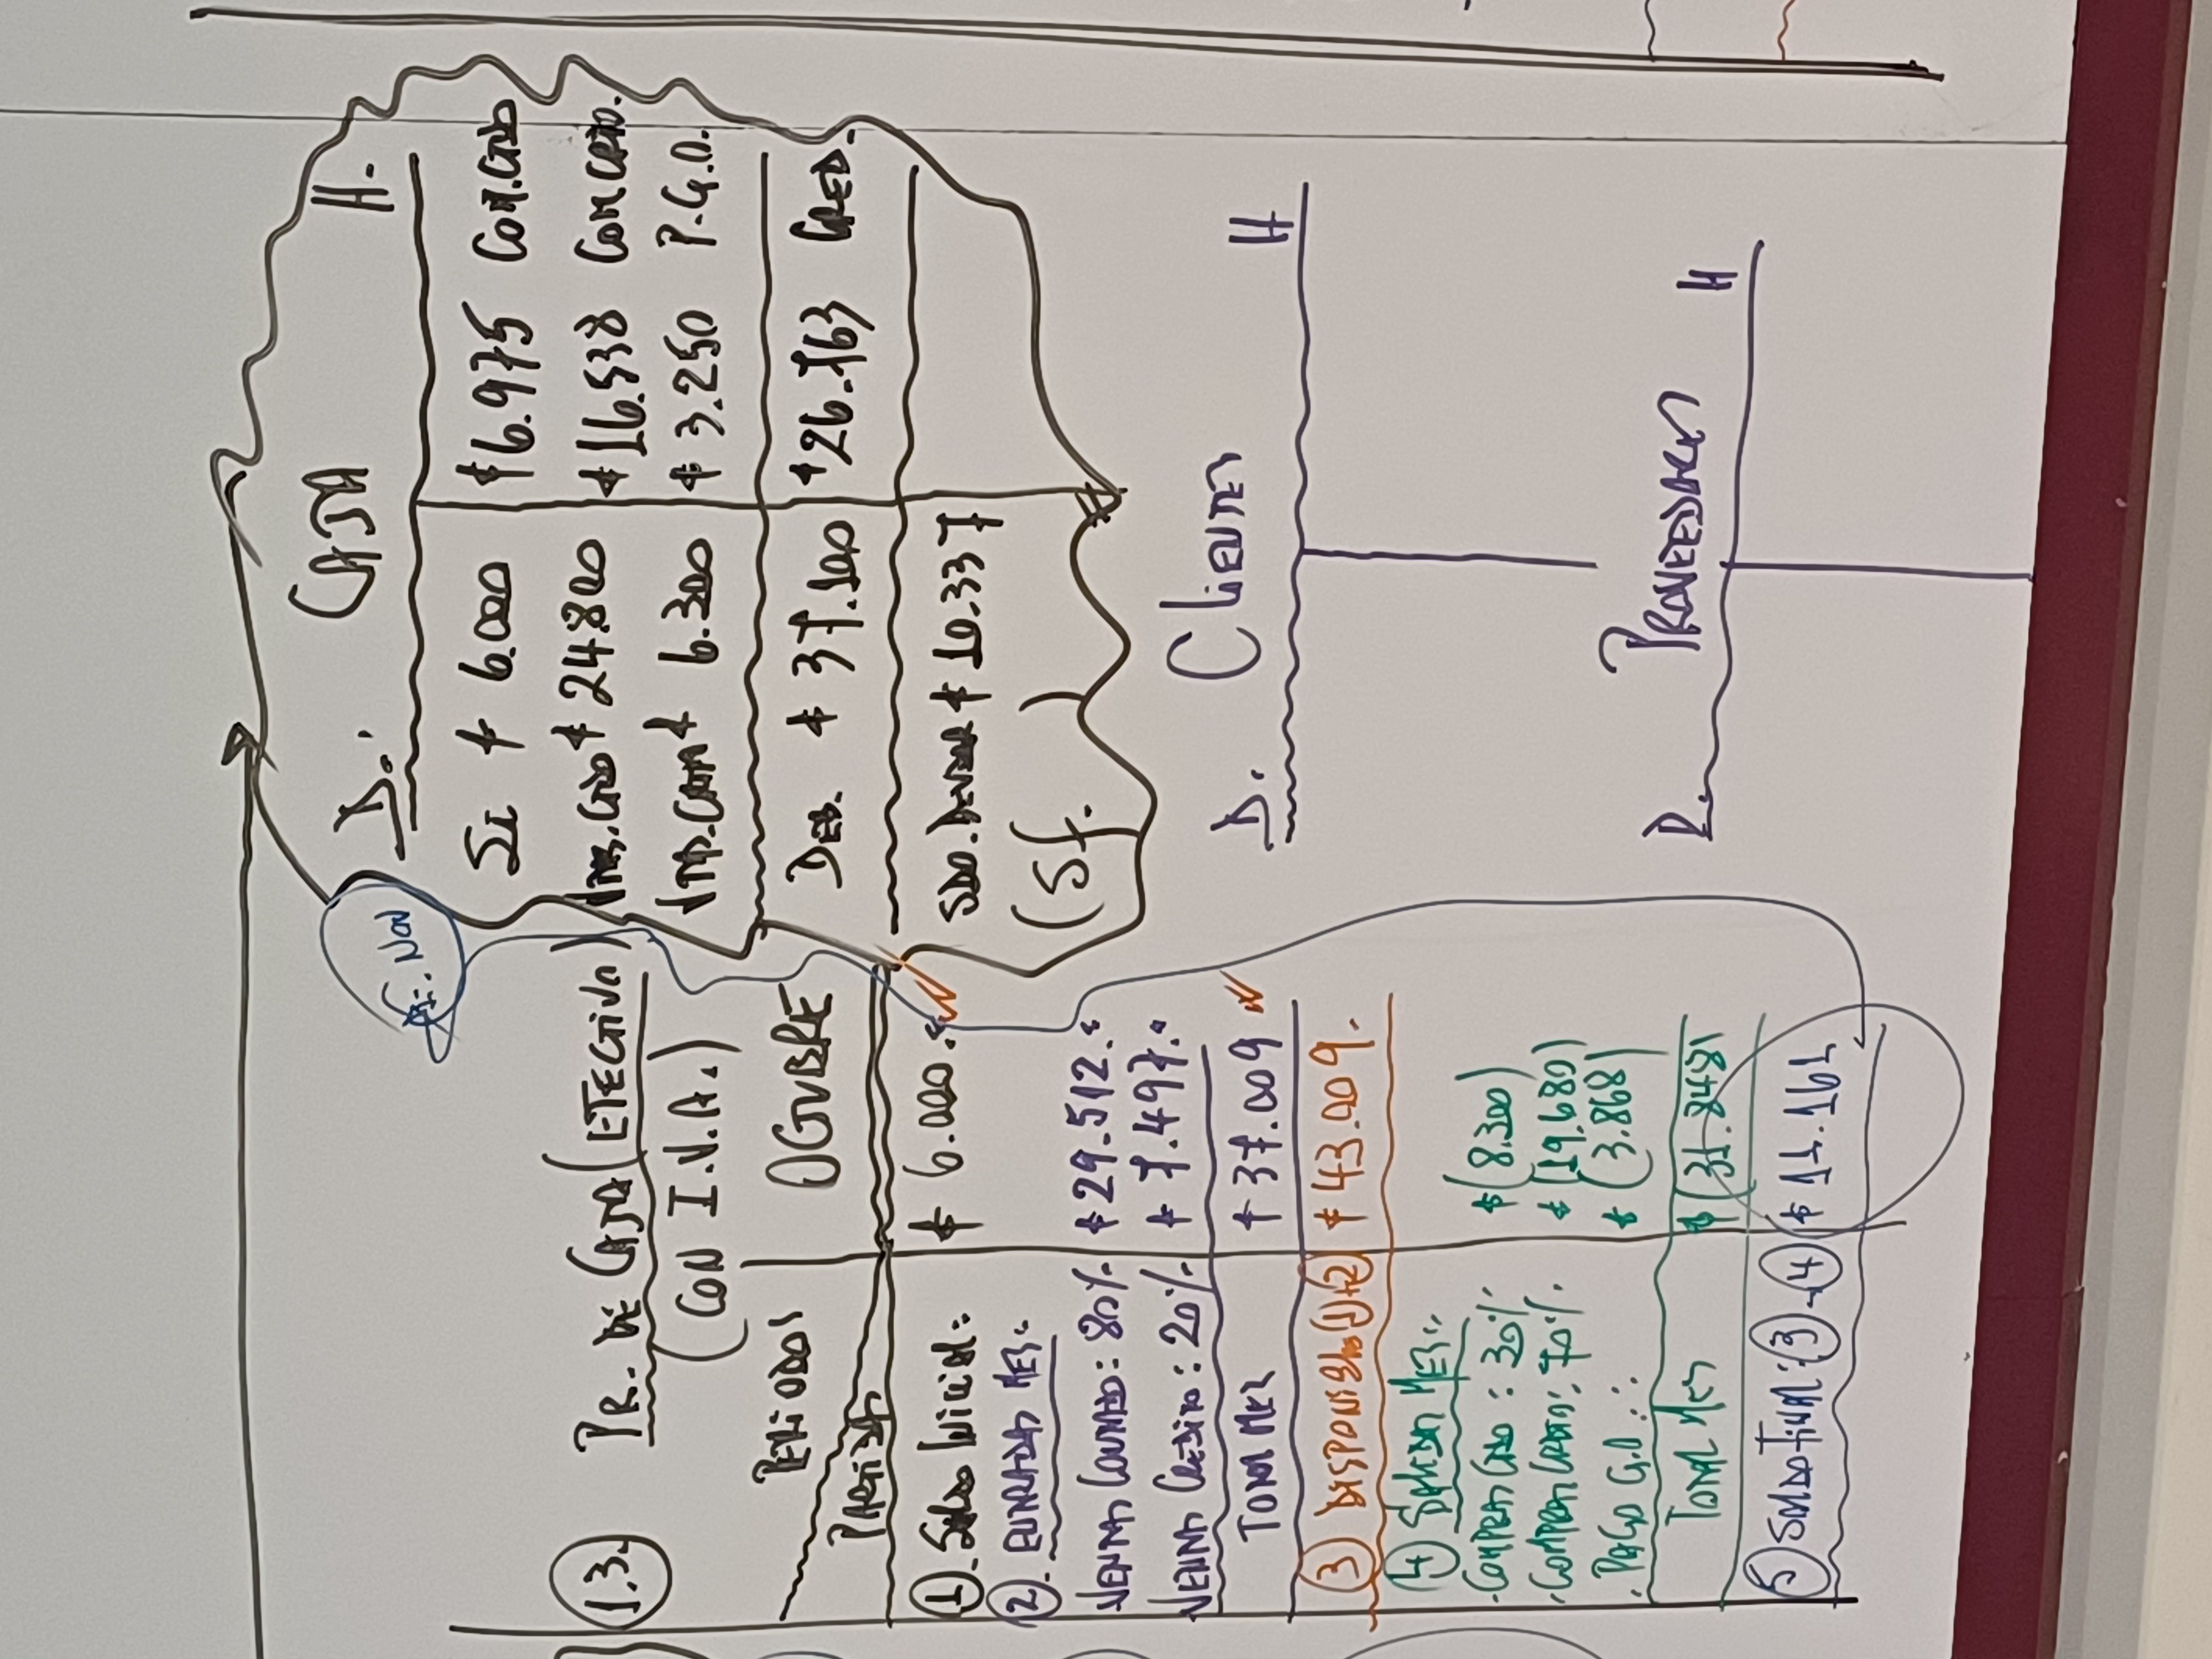 1.3. PR. DE CAJA (EFECTIVO)
(CON I.V.A.)
PERIODOS OCTUBRE
PARTIDAS
① SALDO INICIAL: $ 6.000.
② ENTRADAS MES:
VENTAS CONTADO: 80% $ 29.512.
VENTAS CREDITO: 20% $ 7.497.
TOTAL MES $ 37.009
③ DISPONIBLE ①+② $ 43.009.
④ SALIDAS MES:
. COMPRAS CTDO: 30% $ (8.300)
. COMPRAS CRDTO: 70% $ (19.680)
. PAGO G.O.: $ (3.868)
TOTAL MES $ (31.848)
⑤ SALDO FINAL: ③ - ④ $ 11.161
Nov
D. CAJA H.
SI $ 6.000 $ 6.975 COM. CTDO
VTAS. CTDO $ 24.800 $ 16.538 COM CRTO.
VTAS. CRTO $ 6.300 $ 3.250 P.G.O.
DEB. $ 37.100 $ 26.763 CRED.
SDO. DEUDOR $ 10.337
(Sf. )
D. CLIENTES H
D. PROVEEDORES H